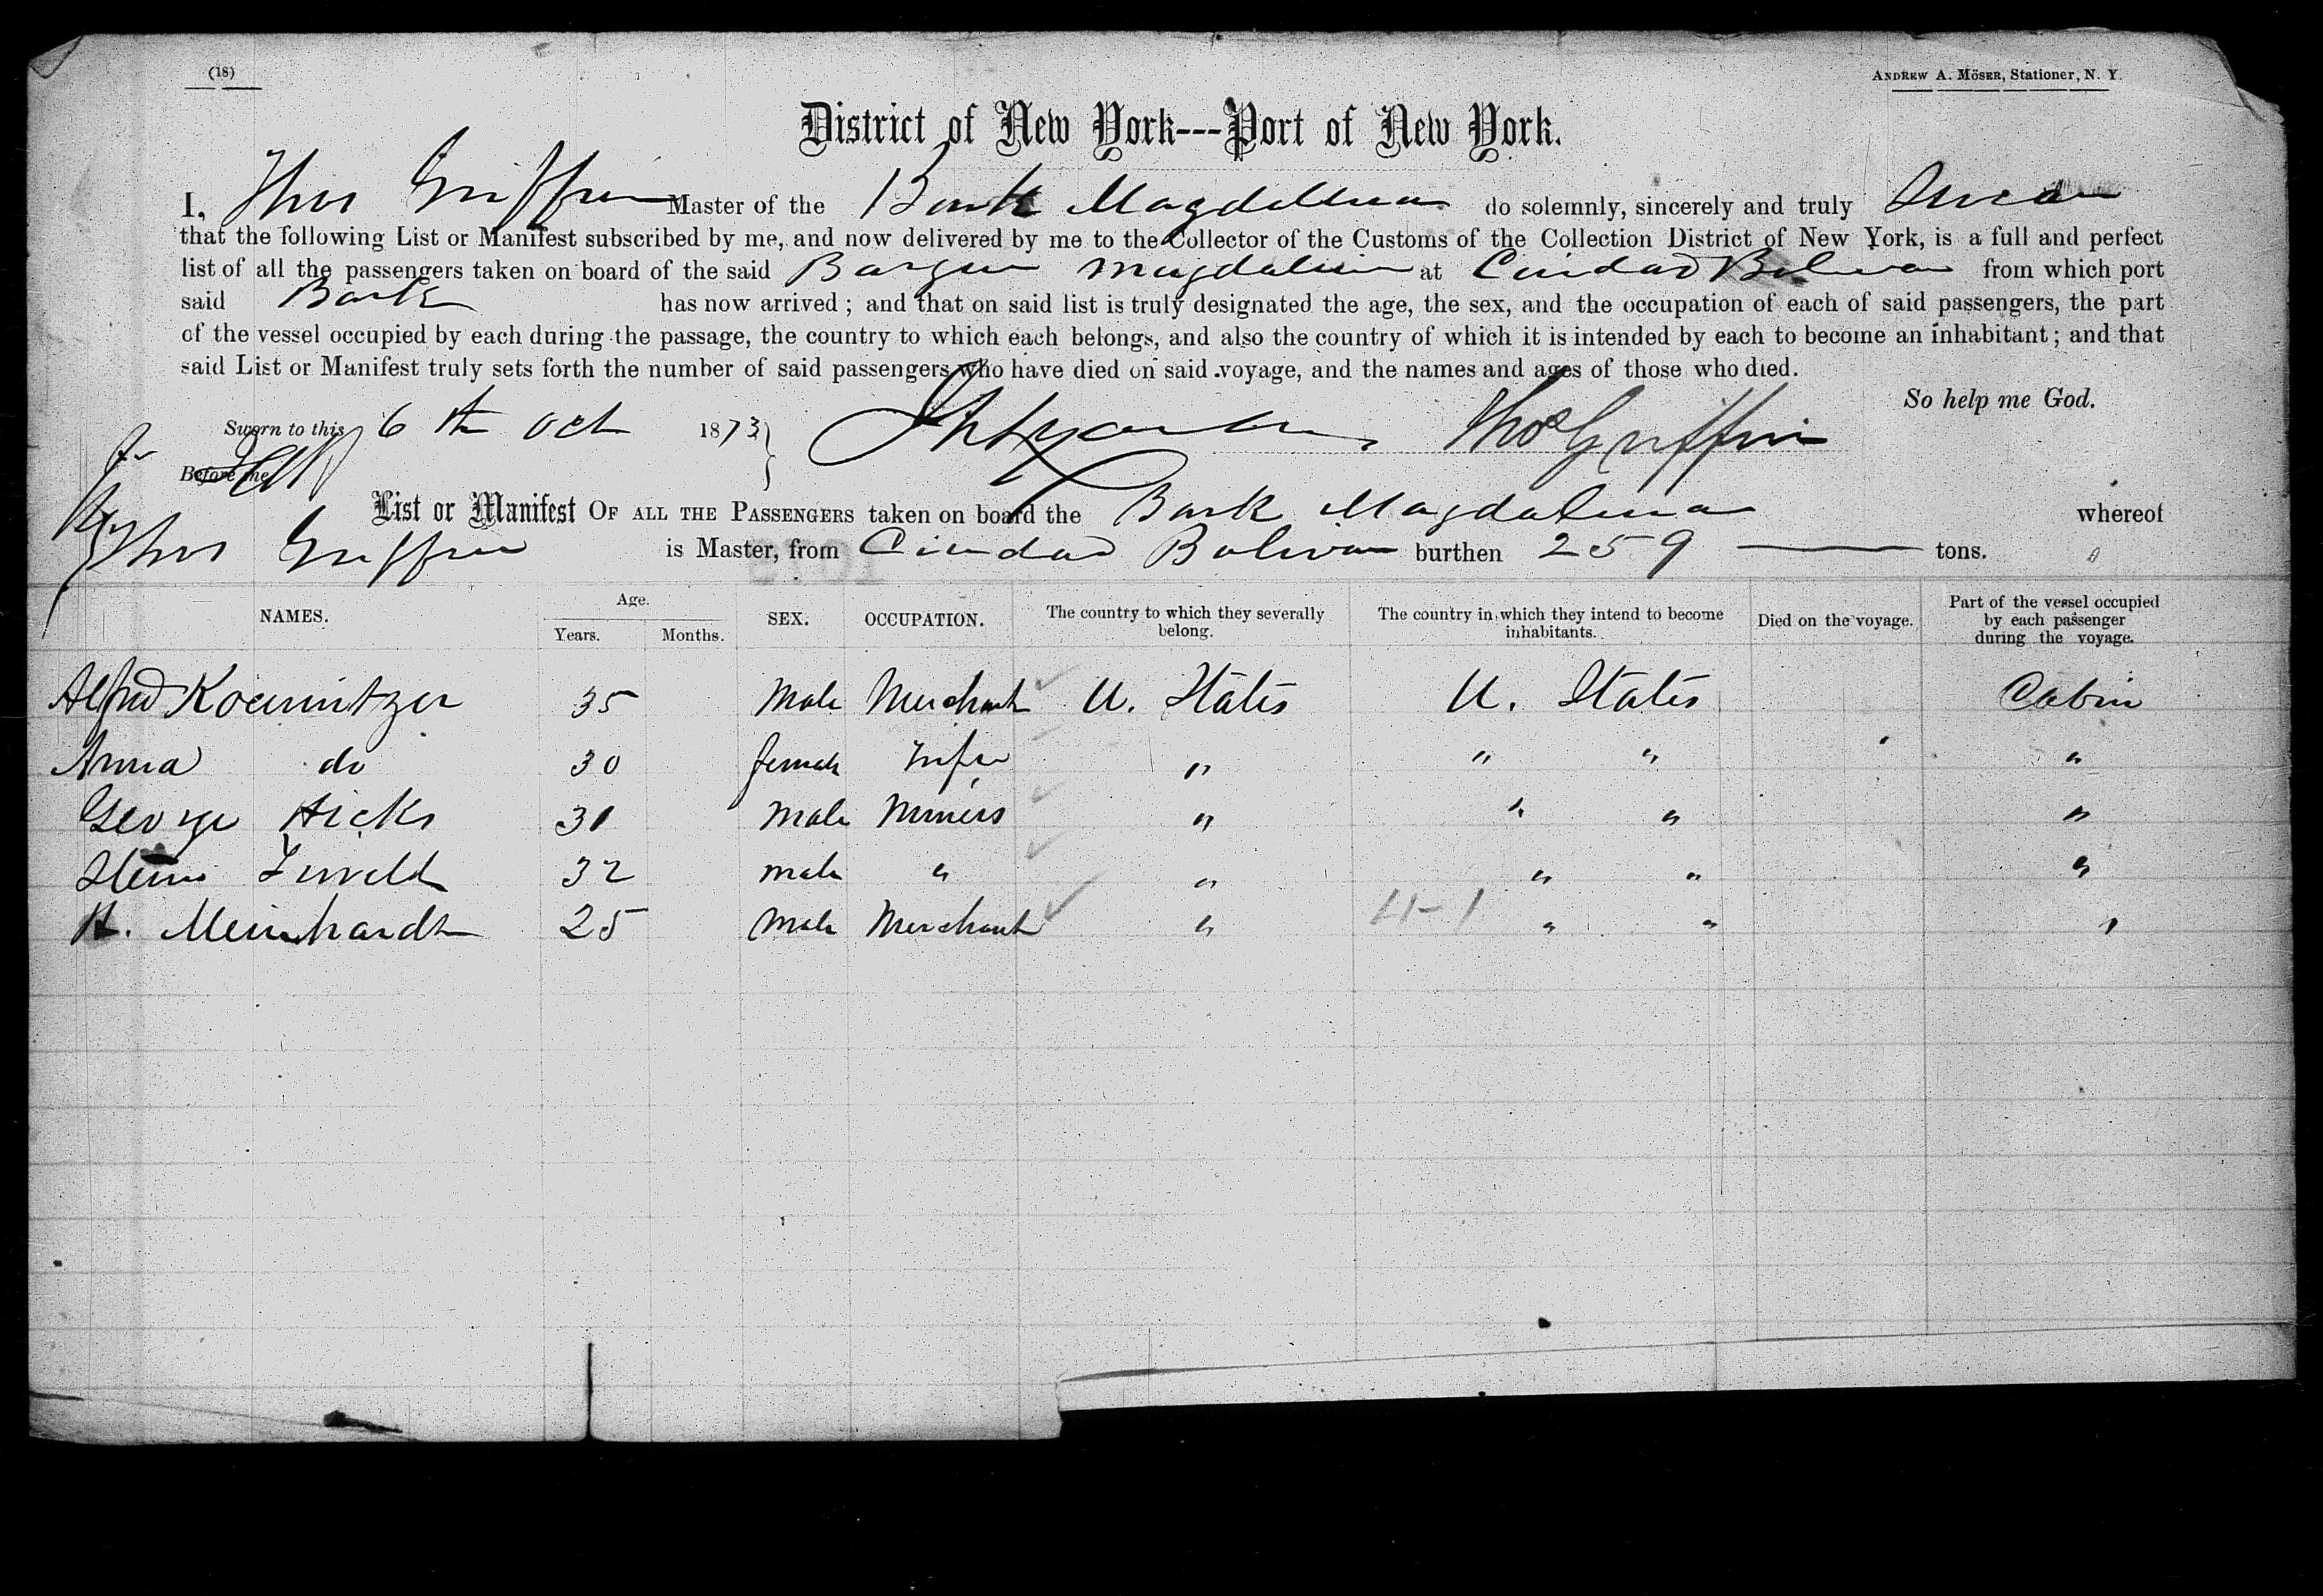 (18)
ANDREW A. MÖSER, Stationer, N. Y.
District of New York---Port of New York.
I, Thos Griffin Master of the Bark Magdellena do solemnly, sincerely and truly Swear
that the following List or Manifest subscribed by me, and now delivered by me to the Collector of the Customs of the Collection District of New York, is a full and perfect
list of all the passengers taken on board of the said Barque Magdalena at Ciudad Bolivar from which port
said Bark has now arrived; and that on said list is truly designated the age, the sex, and the occupation of each of said passengers, the part
of the vessel occupied by each during the passage, the country to which each belongs, and also the country of which it is intended by each to become an inhabitant; and that
said List or Manifest truly sets forth the number of said passengers who have died on said voyage, and the names and ages of those who died.
So help me God.
Sworn to this 6th Oct 1873 Thos Griffin
Before me
List or Manifest OF ALL THE PASSENGERS taken on board the Bark Magdalena whereof
Thos Griffin is Master, from Ciudad Bolivar burthen 259 tons.
NAMES. Age. Years. Months. SEX. OCCUPATION. The country to which they severally belong. The country in which they intend to become inhabitants. Died on the voyage. Part of the vessel occupied by each passenger during the voyage.
Alfred Koennitzer 35 Male Merchant U. States U. States Cabin
Anna do 30 female Wife " " " "
George Hicks 31 Male Miners " " " "
32 male " " " " "
H. Meinhardt 25 Male Merchant " 4-1 " " "